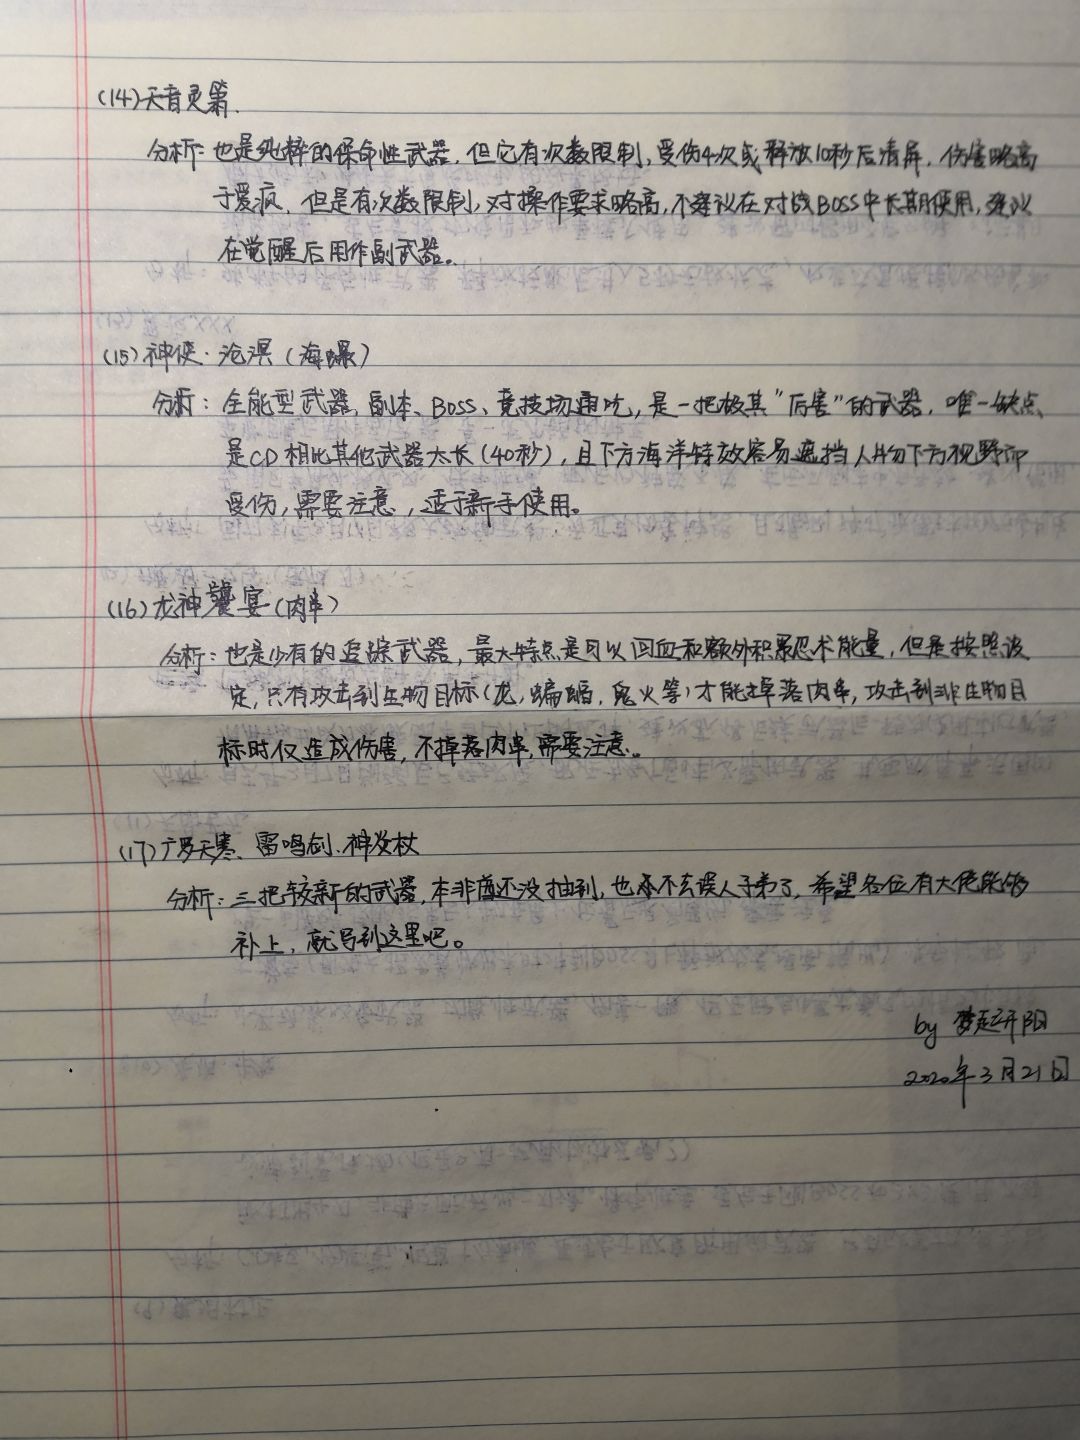 (14)天音灵箫.
分析：也是纯粹的保命性武器，但它有次数限制，受伤4次或释放10秒后清屏，伤害略高
于爱疯，但是有次数限制，对操作要求略高，不建议在对战BOSS中长期使用，建议
在觉醒后用作副武器。
(15)神使·沧溟（海螺）
分析：全能型武器，副本、BOSS、竞技场通吃，是一把极其"厉害"的武器，唯一缺点
是CD相比其他武器太长（40秒），且下方海洋特效容易遮挡人物下方视野而
受伤，需要注意，适于新手使用。
(16)龙神饕宴（肉串）
分析：也是少有的追踪武器，最大特点是可以回血和额外积累忍术能量，但是按照设
定，只有攻击到生物目标（龙，蝙蝠，鬼火等）才能掉落肉串，攻击到非生物目
标时仅造成伤害，不掉落肉串，需要注意。
(17)广罗天寒、雷鸣剑、神发杖
分析：三把较新的武器，本非酋还没抽到，也不去误人子弟了，希望各位有大佬能够
补上，就写到这里吧。
by 梦起开阳
2020年3月21日